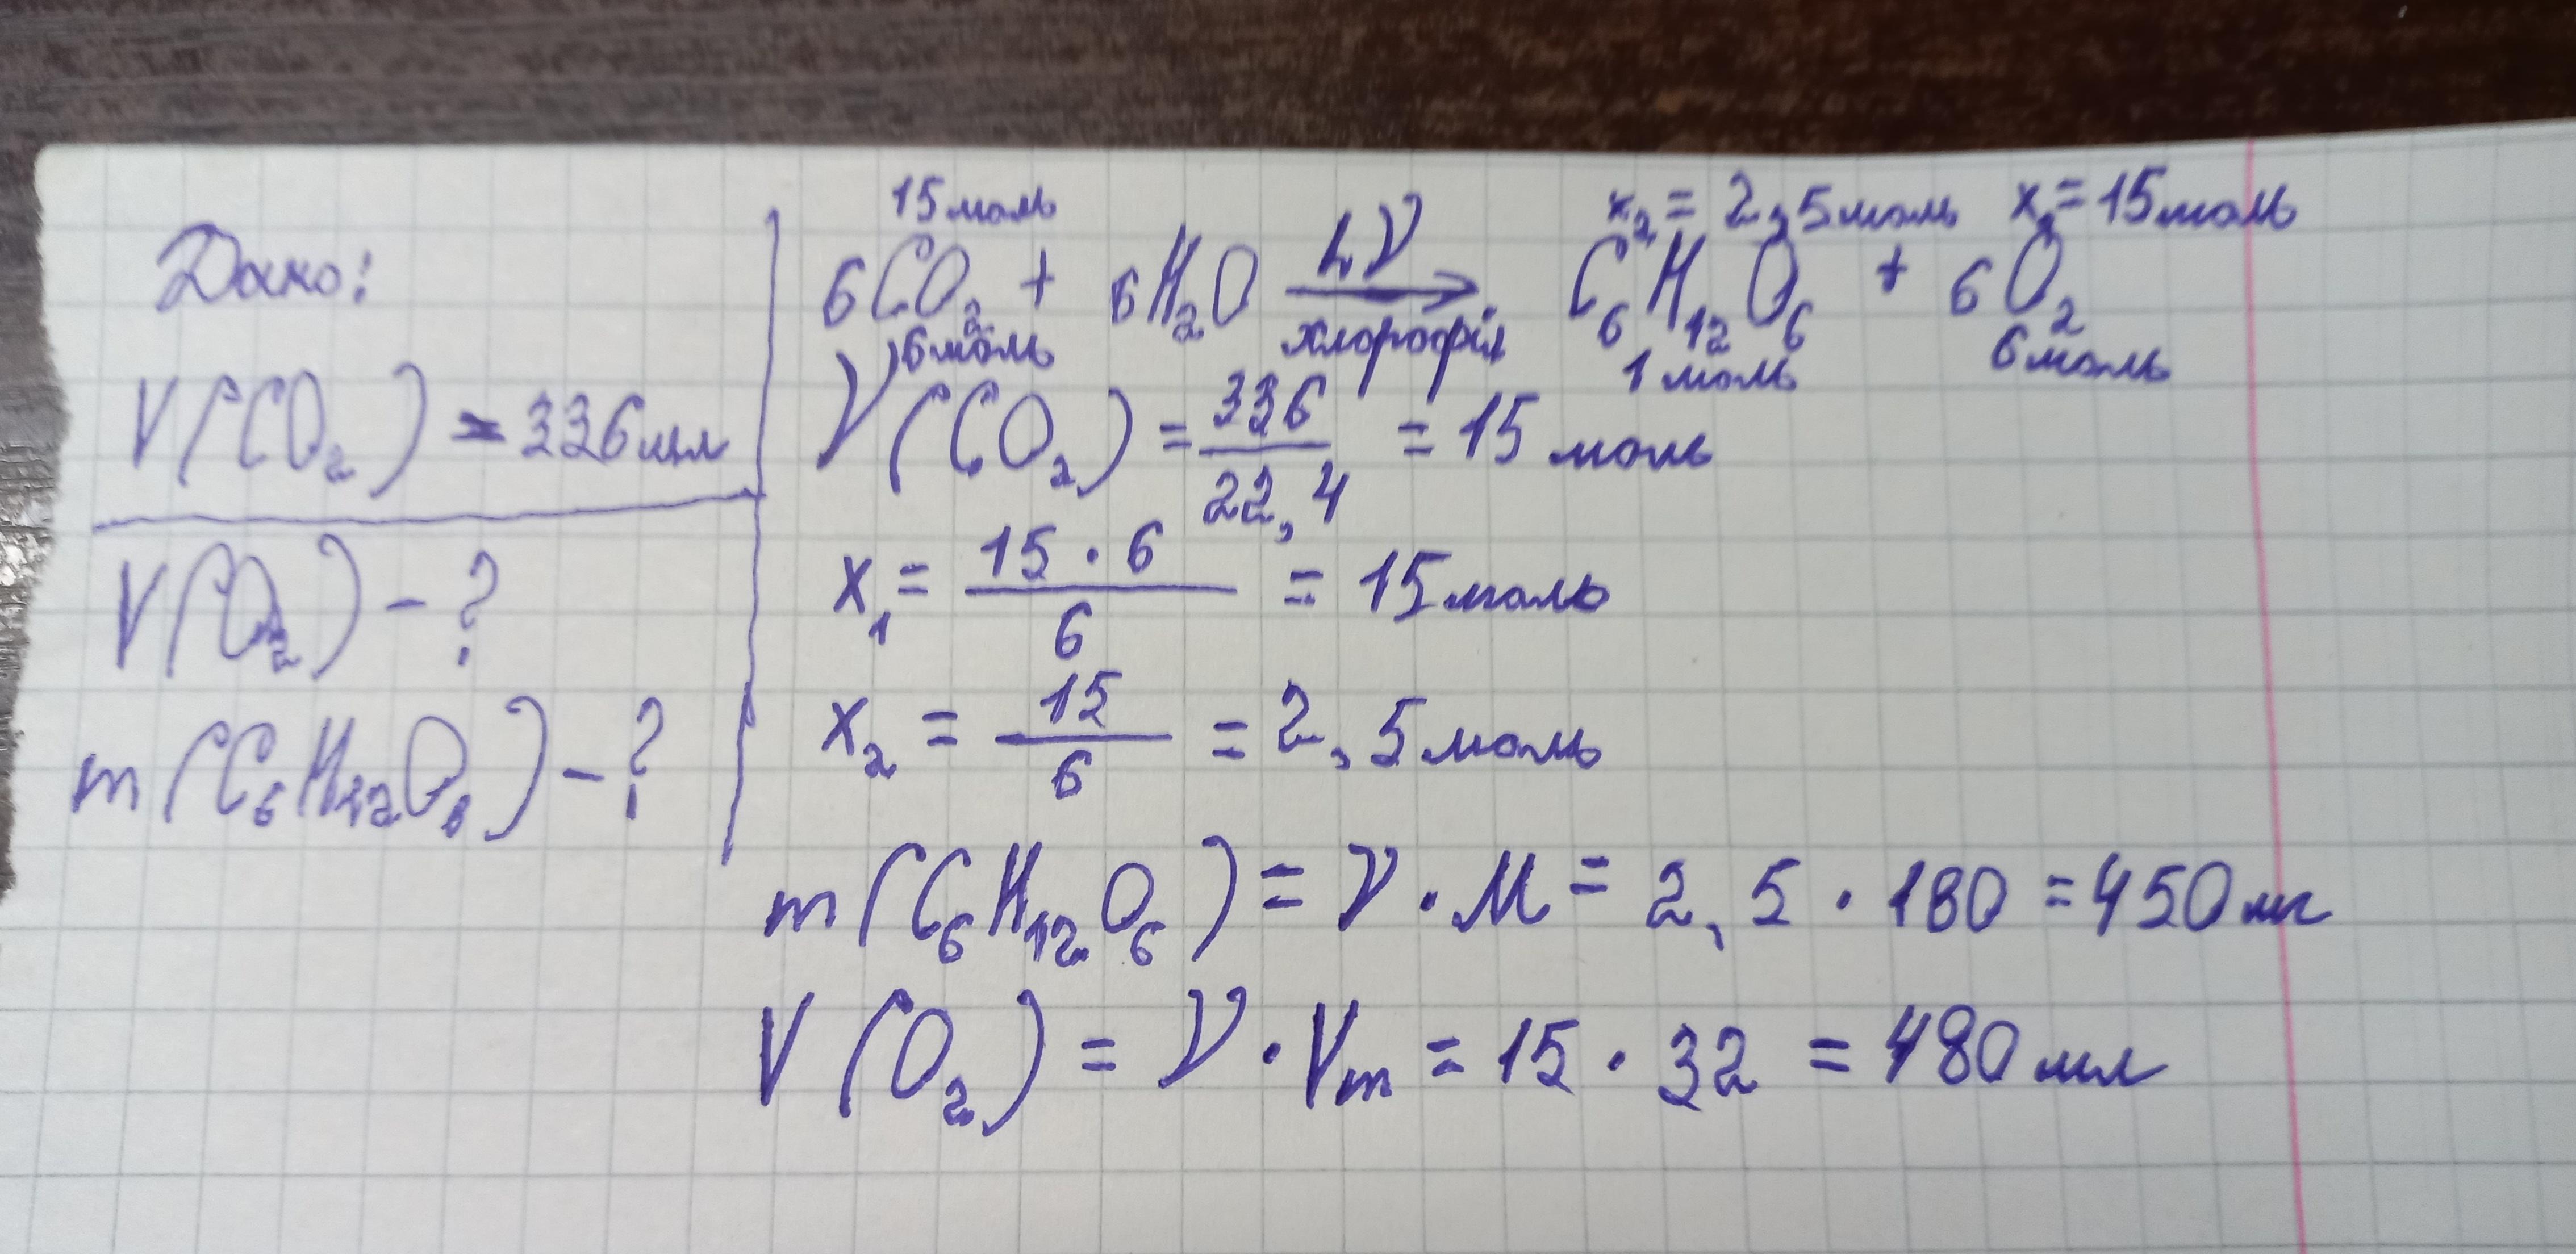 Дано:
V(CO₂) = 336мл
V(O₂) - ?
m(C₆H₁₂O₆) - ?
15моль x₂ = 2,5моль x₁ = 15моль
6CO₂ + 6H₂O hν → C₆H₁₂O₆ + 6O₂
6моль хлорофіл 1моль 6моль
ν(CO₂) = 336/22,4 = 15 моль
x₁ = 15 · 6/6 = 15моль
x₂ = 15/6 = 2,5моль
m(C₆H₁₂O₆) = ν · M = 2,5 · 180 = 450мг
V(O₂) = ν · Vm = 15 · 32 = 480мл